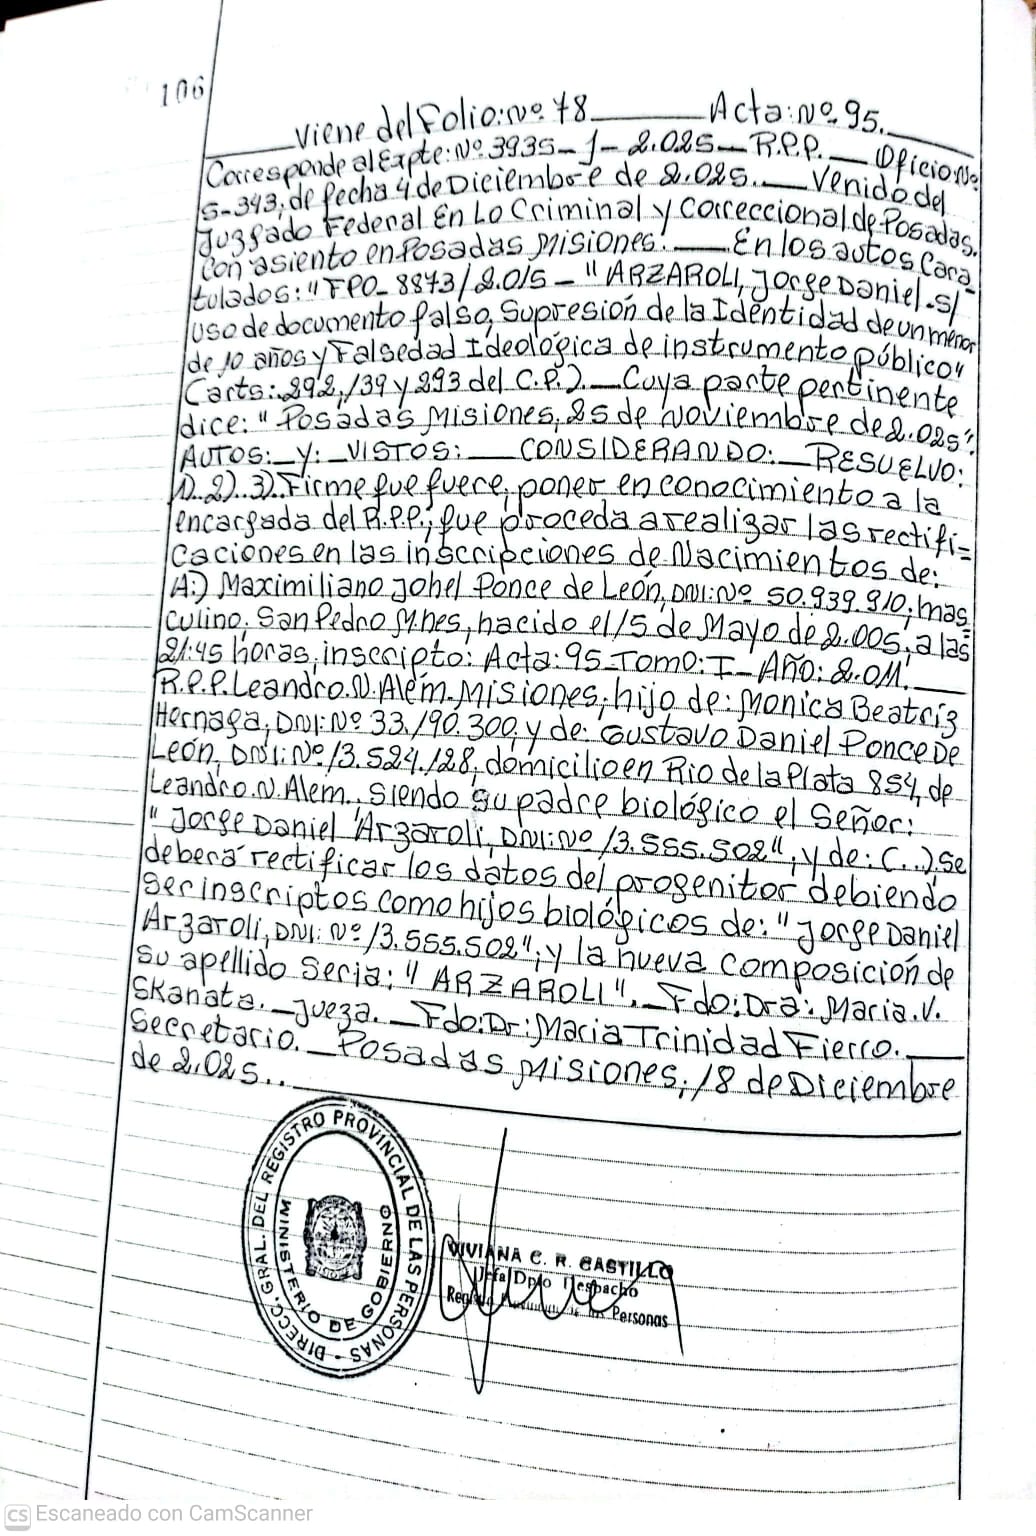 106
Viene del Folio: Nº 78 ______ Acta: Nº 95.___
Corresponde al Expte: Nº 3935-J-2.025__R.P.P.__Oficio Nº
S-343, de fecha 4 de Diciembre de 2.025.__Venido del
Juzgado Federal En Lo Criminal y Correccional de Posadas.
Con asiento en Posadas Misiones:__En los autos Cara
tulados: "FPO-8873/2.015-"ARZAROLI, Jorge Daniel.s/
Uso de documento falso, Supresión de la Identidad de un menor
de 10 años y Falsedad Ideológica de instrumento público"
Carts: 292, 139 y 293 del C.P.).__Cuya parte pertinente
dice: "Posadas Misiones, 25 de Noviembre de 2.025".
AUTOS:_Y:_VISTOS:__CONSIDERANDO:_RESUELVO:
1)..2)..3).Firme que fuere, poner en conocimiento a la
encargada del R.P.P.; que proceda a realizar las rectifi=
caciones en las inscripciones de Nacimientos de:
A:) Maximiliano Johel Ponce de León, DNI: Nº 50.939.910; mas
culino, San Pedro Mnes, nacido el 15 de Mayo de 2.005, a las
21:45 horas, inscripto: Acta: 95-Tomo: I-Año: 2.011.__
R.P.P. Leandro.N.Alem.Misiones, hijo de: Monica Beatriz
Hornaga, DNI: Nº 33.190.300, y de: Gustavo Daniel Ponce De
León, DNI: Nº 13.524.128, domicilio en Rio de la Plata 854, de
Leandro.N.Alem., siendo su padre biológico el Señor:
"Jorge Daniel Arzaroli, DNI: Nº 13.555.502", y de: (...).se
deberá rectificar los datos del progenitor debiendo
ser inscriptos como hijos biológicos de: "Jorge Daniel
Arzaroli, DNI: Nº 13.555.502"; y la nueva composición de
su apellido Seria: "ARZAROLI"._Fdo: Dra: Maria.V.
Skanata._Jueza._Fdo: Dr: Maria Trinidad Fierro.__
Secretario._Posadas Misiones, 18 de Diciembre
de 2.025..___
DIRECC. GRAL. DEL REGISTRO PROVINCIAL DE LAS PERSONAS -
MINISTERIO DE GOBIERNO
VIVIANA C. R. CASTILLO
Jefa Dpto Despacho
Personas
CS Escaneado con CamScanner